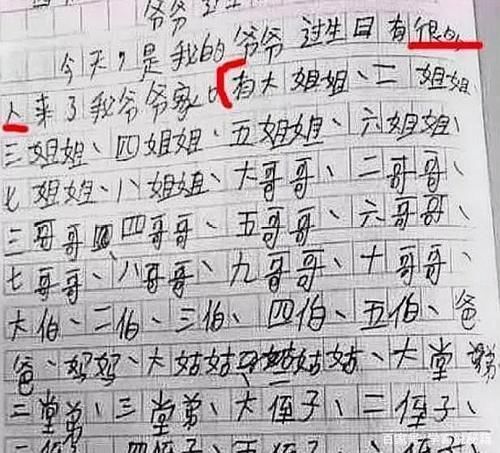 爷爷
今天，是我的爷爷过生日有很多
人来了我爷爷家。有大姐姐、二姐姐、
三姐姐、四姐姐、五姐姐、六姐姐、
七姐姐、八姐姐、大哥哥、二哥哥、
三哥哥、四哥哥、五哥哥、六哥哥、
七哥哥、八哥哥、九哥哥、十哥哥、
大伯、二伯、三伯、四伯、五伯、爸
爸、妈妈、大姑姑、姑姑、大堂弟、
二堂弟、三堂弟、大侄子、二侄子、
三侄子、四侄子、五侄子、
百家号